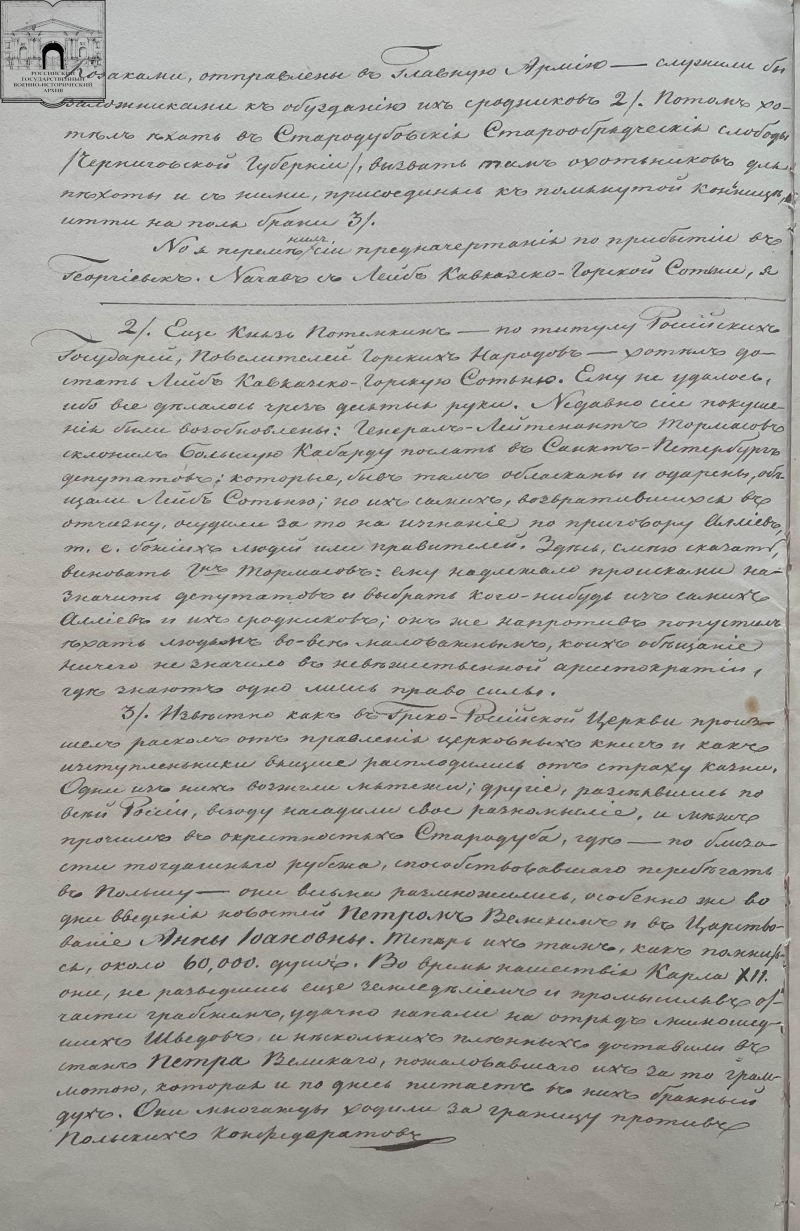 РОССИЙСКИЙ
ГОСУДАРСТВЕННЫЙ
ВОЕННО-ИСТОРИЧЕСКИЙ
АРХИВ
Козаками, отправлены въ Главную Армію — служили бы
заложниками къ обузданію ихъ сродниковъ 2/. Потомъ хо-
тѣлъ ѣхать въ Стародубовскія Старообрядческія слободы
/Черниговской Губерніи/, вызвать тамъ охотниковъ для
пѣхоты и съ ними, присоединясь къ помянутой конницѣ,
итти на поля брани 3/.
Но я перемѣнилъ сіи предначертанія по прибытіи въ
Георгіевскъ. Начавъ съ Лейбъ Кавказско-Горской Сотьни, я
2/. Еще Князь Потемкинъ — по титулу Російскихъ
Государей, Повелителей Горскихъ Народовъ — хотѣлъ до-
стать Лейбъ Кавказско-Горскую Сотьню. Ему не удалось,
ибо все дѣлалось чрезъ десятыя руки. Недавно сіи покуше-
нія были возобновлены: Генералъ-Лейтенантъ Тормасовъ
склонилъ Большую Кабарду послать въ Санктъ-Петербургъ
депутатовъ; которые, бывъ тамъ обласканы и одарены, обѣ-
щали Лейбъ Сотьню; но ихъ самихъ, возвратившихся въ
отчизну, осудили за то на изгнаніе по приговору Алліевъ,
т. е. божіихъ людей или правителей. Здѣсь, смѣю сказать,
виноватъ Гнъ Тормасовъ: ему надлежало происками на-
значить депутатовъ и выбрать кого-нибудь изъ самихъ
Алліевъ и ихъ сродниковъ; онъ же напротивъ попустилъ
ѣхать людямъ во-все маловажнымъ, коихъ обѣщаніе
ничего не значило въ невѣжественной аристократіи,
гдѣ знаютъ одно лишь право силы.
3/. Извѣстно какъ въ Греко-Російской Церкви произ-
шелъ расколъ отъ правленія церковныхъ книгъ и какъ
изступленники вящше расплодились отъ страху казни.
Одни изъ нихъ возжгли мятежи; другіе, разсѣявшись по
всей Росіи, всюду насадили свое разномысліе, и межъ
прочимъ въ окрестностяхъ Стародуба, гдѣ — по близо-
сти тогдашняго рубежа, способствовавшаго перебѣгать
въ Польшу — они весьма размножились, особенно же во
дни введенія новостей Петромъ Великимъ и въ Царство-
ваніе Анны Іоановны. Теперь ихъ тамъ, какъ помнит-
ся, около 60,000. душъ. Во время нашествія Карла XII.
они, не разведшись еще земледѣліемъ и промышлявъ от-
части грабежемъ, удачно напали на отрядъ мимошед-
шихъ Шведовъ и нѣсколькихъ плѣнныхъ доставили въ
станъ Петра Великаго, пожаловавшаго ихъ за то грам-
мотою, которая и по днесь питаетъ въ нихъ бранный
духъ. Они многажды ходили за границу противъ
Польскихъ Конфедератовъ